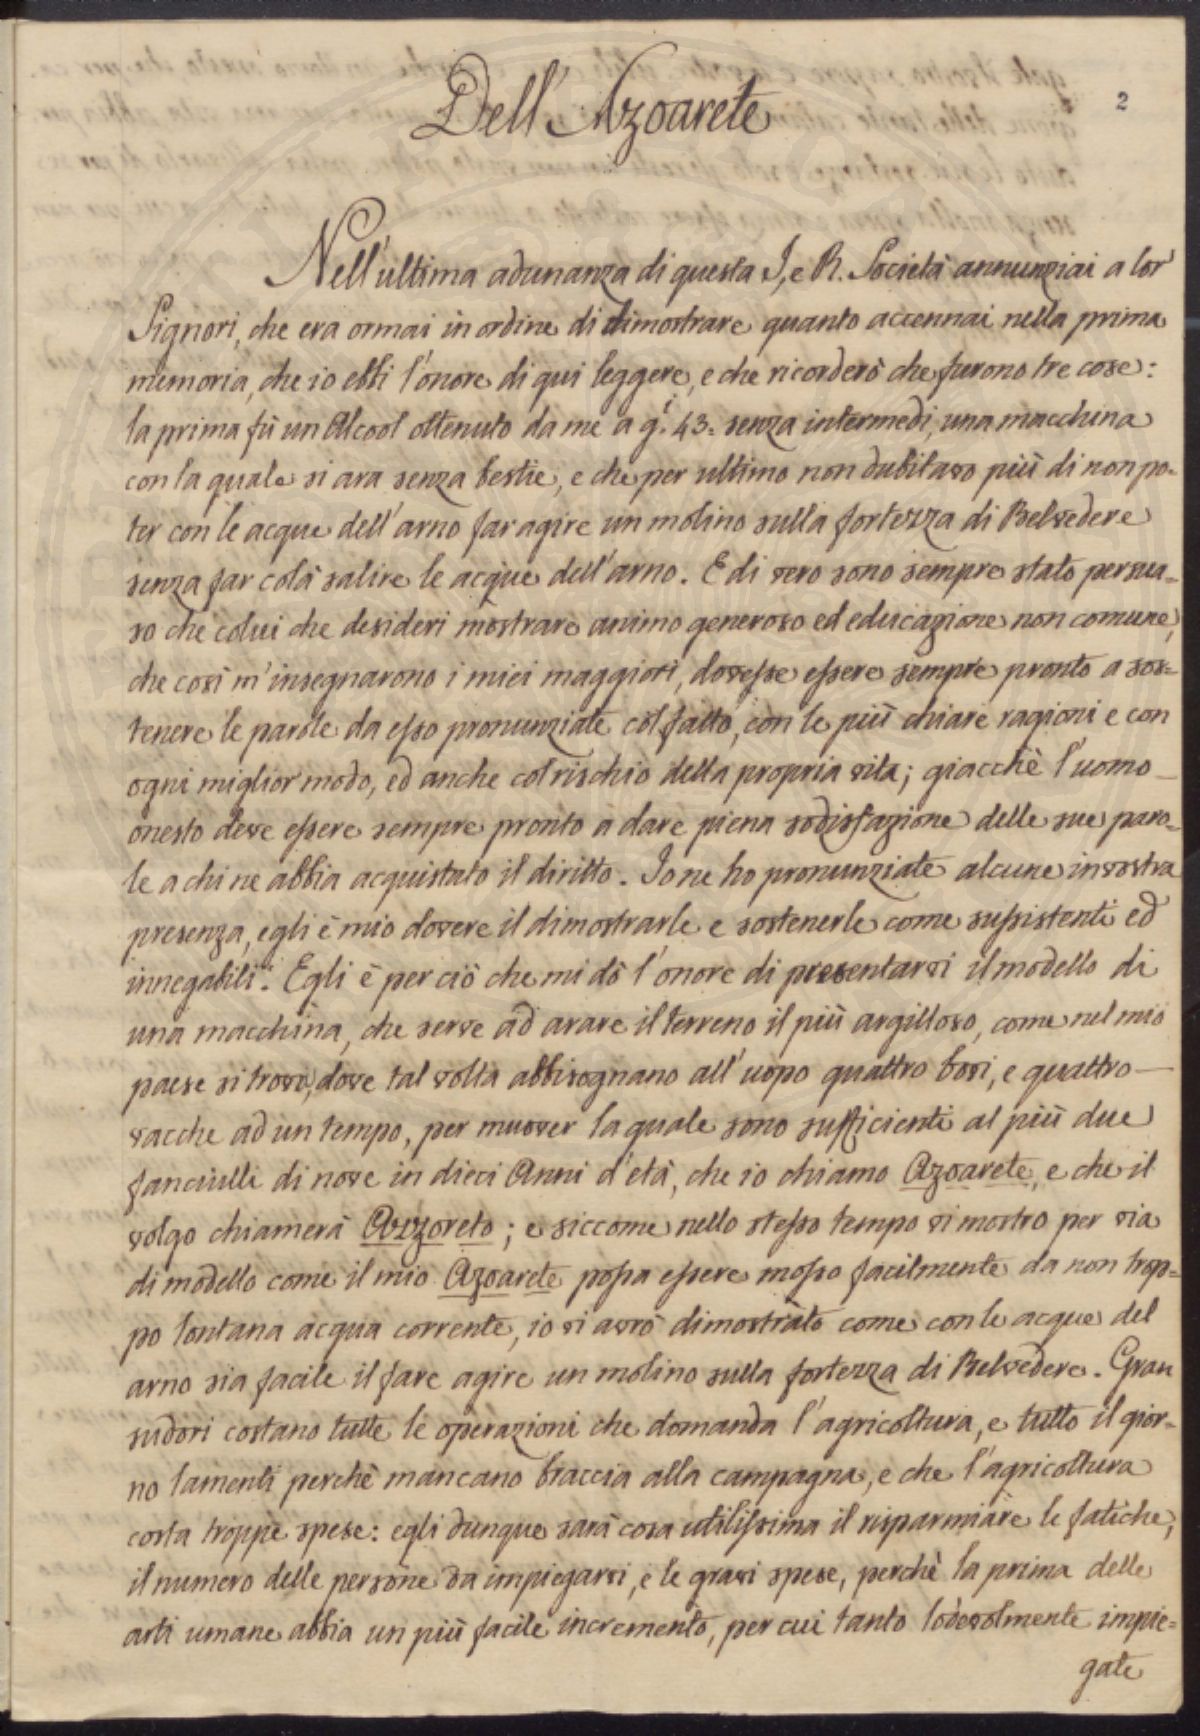 2
Dell'Azoarete
Nell'ultima adunanza di questa I, e R. Società annunziai a lor
Signori, che era ormai in ordine di dimostrare quanto accennai nella prima
memoria, che io ebbi l'onore di qui leggere, e che ricorderò che furono tre cose:
la prima fù un Alcool ottenuto da me a g.i 43. senza intermedi, una macchina
con la quale si ara senza bestie, e che per ultimo non dubitavo più di non po=
ter con le acque dell'arno far agire un molino sulla fortezza di Belvedere
senza far colà salire le acque dell'arno. E di vero sono sempre stato persua=
so che colui che desideri mostrare animo generoso ed educazione non comune,
che così m'insegnarono i miei maggiori, dovesse essere sempre pronto a sos=
tenere le parole da esso pronunziate col fatto, con le più chiare ragioni e con
ogni miglior modo, ed anche col rischio della propria vita; giacchè l'uomo
onesto deve essere sempre pronto a dare piena sodisfazione delle sue paro=
le a chi ne abbia acquistato il diritto. Io ne ho pronunziate alcune in vostra
presenza, egli è mio dovere il dimostrarle e sostenerle come sussistenti ed
innegabili. Egli è per ciò che mi dò l'onore di presentarvi il modello di
una macchina, che serve ad arare il terreno il più argilloso, come nel mio
paese si trova, dove tal volta abbisognano all'uopo quattro bovi, e quattro
vacche ad un tempo, per muover la quale sono sufficienti al più due
fanciulli di nove in dieci Anni d'età, che io chiamo Azoarete, e che il
volgo chiamerà Avzoreto; e siccome nello stesso tempo vi mostro per via
di modello come il mio Azoarete possa essere mosso facilmente da non trop=
po lontana acqua corrente, io vi avrò dimostrato come con le acque del
arno sia facile il fare agire un molino sulla fortezza di Belvedere. Gran
sudori costano tutte le operazioni che domanda l'agricoltura, e tutto il gior=
no lamenti perchè mancano braccia alla campagna, e che l'agricoltura
costa troppe spese: egli dunque sarà cosa utilissima il risparmiare le fatiche,
il numero delle persone da impiegarsi, e le gravi spese, perchè la prima delle
arti umane abbia un più facile incremento, per cui tanto lodevolmente impie=
gate